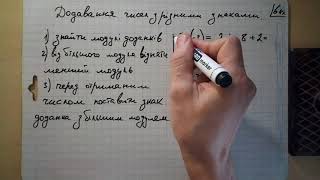 Додавання чисел з різними знаками
1) знайти модулі доданків
2) від більшого модуля відняти
менший модуль
3) перед отриманим
числом поставити знак
доданка з більшим модулем